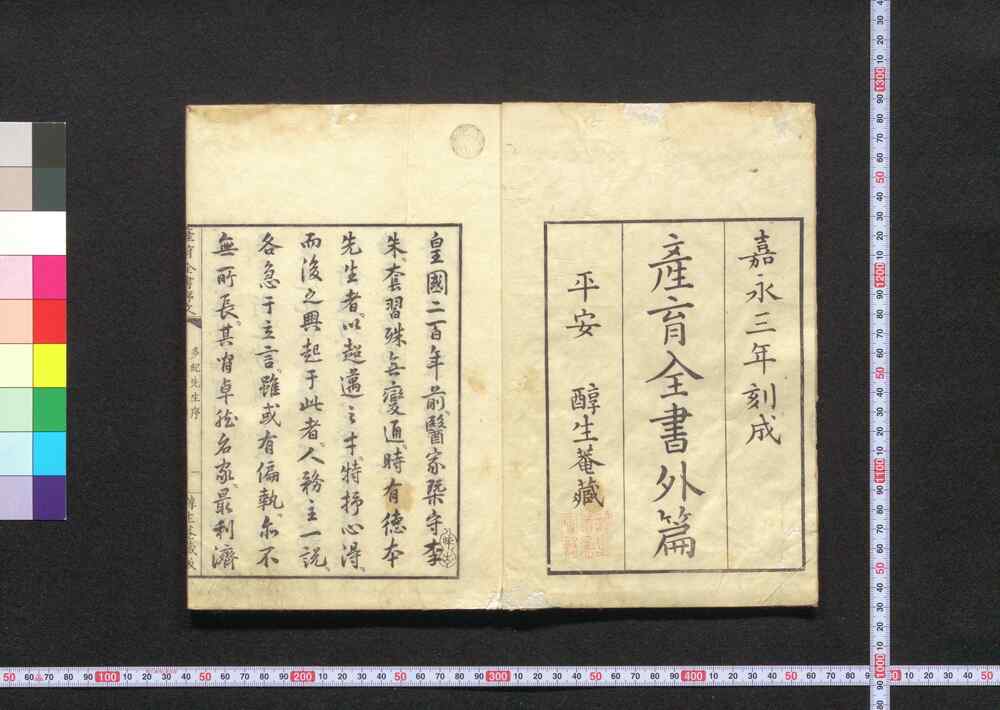 嘉永三年刻成
産育全書外篇
平安 醇生菴藏
皇國二百年前醫家槩守李
朱套習殊無變通時有德本
先生者以超邁之才特抒心得
而後之興起于此者人務主一説
各急于立言雖或有偏執亦不
無所長其省卓然名家最利濟
多紀先生序
一